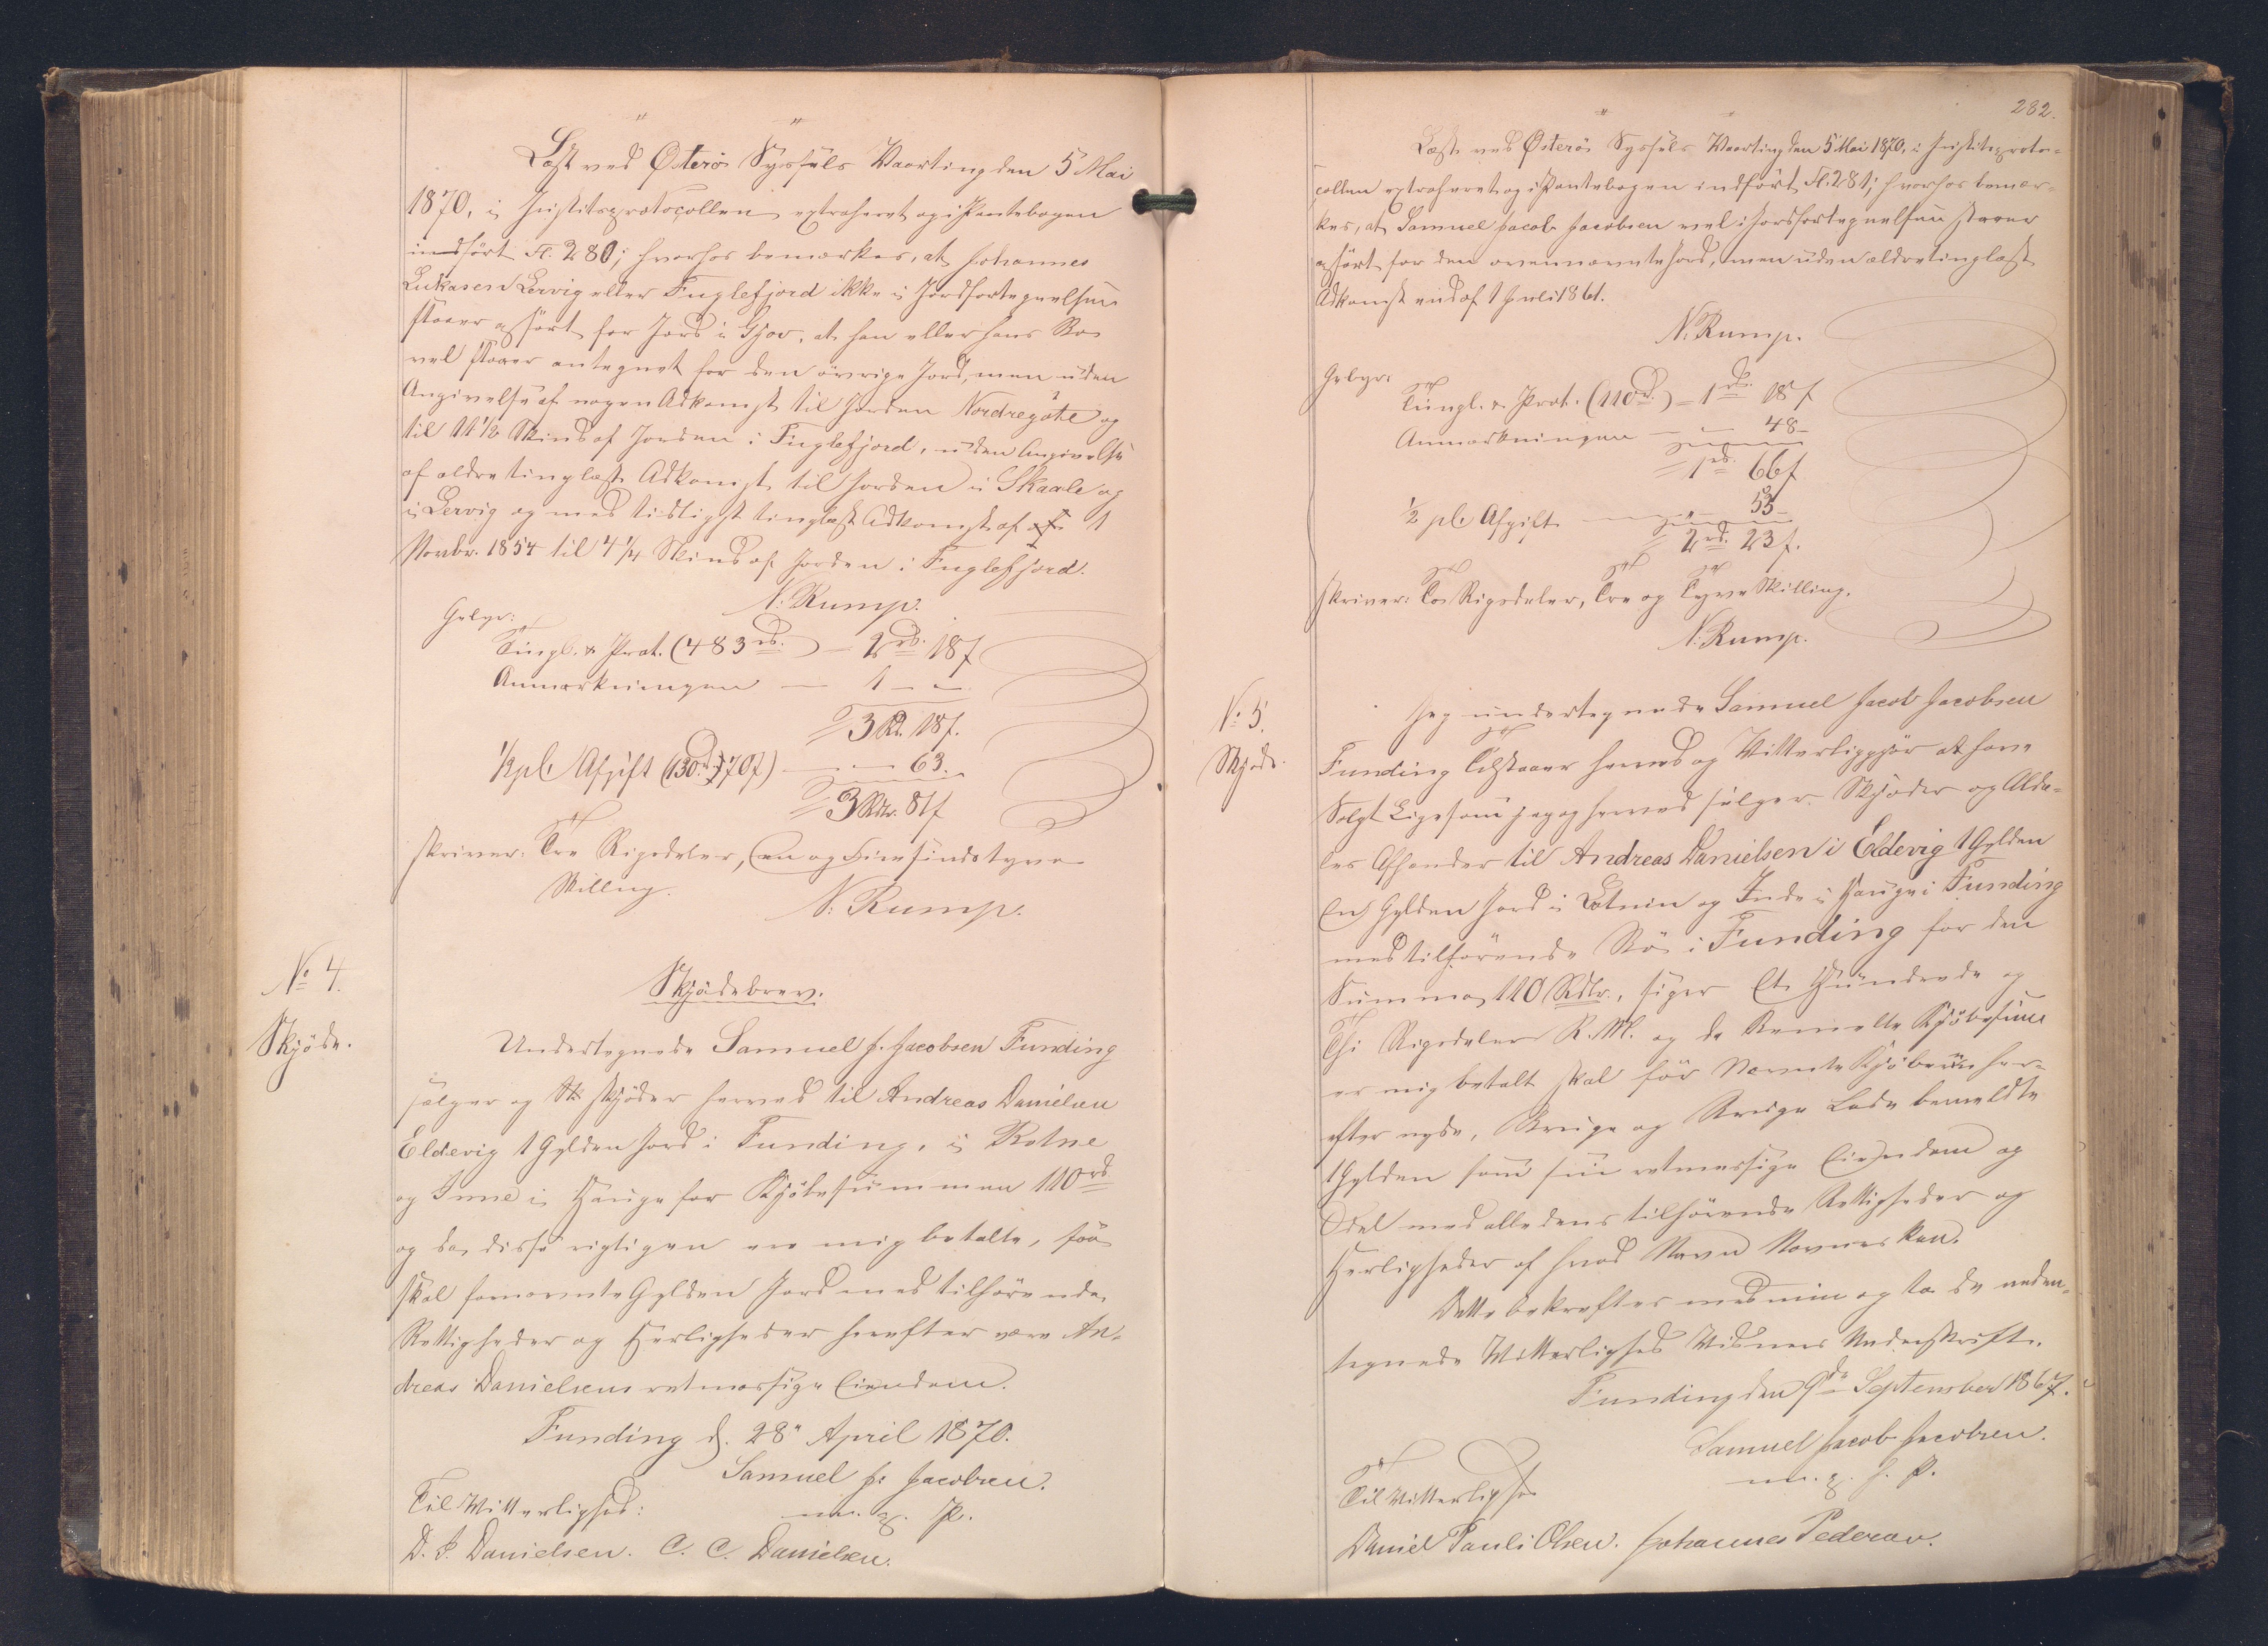 Læst ved Österö Syssels Vaarting den 5 Mai
1870, i Justitsprotocollen extraheret og i Pantebogen
indfört Fl. 280; hvorhos bemærkes, at Johannes
Lukasen Lervig eller Fuglefjord ikke i Jordfortegnelsen
staaer opfört for Jord i Gjov, at han eller hans Bo
vel staaer antegnet for den övrige Jord, men uden
Angivelse af nogen Adkomst til Jorden Nordregöte og
til 11 1/2 Skind af Jorden i Fuglefjord, uden Angivelse
af ældre tinglæst Adkomst til Jorden i Skaale og
i Lervig og med tidligst tinglæst Adkomst af 1
Novbr. 1854 til 4 1/4 Skind af Jorden i Fuglefjord.
N: Rump.
Gebyr:
Tingl. & Prot. (483 rd.) — 2 rd. 18 ſ
Anmærkningen — 1 - "-
3 Rd. 18 ſ.
1/2 pCt Afgift (130 rd 70 ſ) — " — 63.
3 Rdr. 81 ſ
skriver: Tre Rigsdaler, Een og Fiirsindstyve
Skilling.
N: Rump.
No 4.
Skjöde.
Skjödebrev.
Undertegnede Samuel J. Jacobsen Funding
sælger og skjöder herved til Andreas Danielsen
Eldevig 1 Gylden Jord i Funding, i Rotne
og Inne i Hauge for Kjöbesummen 110 rd
og da disse rigtigen ere mig betalte, saa
skal fornævnte Gylden Jord med tilhörende
Rettigheder og Herligheder herefter være An-
dreas Danielsens retmæssige Eiendom.
Funding d. 28" April 1870.
Samuel J: Jacobsen.
m. g. P.
Til Vitterlighed:
D. J. Danielsen. C. C. Danielsen.
282.
Læst ved Österö Syssels Vaarting den 5 Mai 1870, i Justitsproto-
collen extraheret og i Pantebogen indfört Fl. 281; hvorhos bemær-
kes, at Samuel Jacob Jacobsen vel i Jordfortegnelsen staaer
opfört for den ovennævnte Jord, men uden ældre tinglæst
Adkomst end af 1 Juli 1861.
N. Rump.
Gebyr:
Tingl. & Prot. (110 rd.) — 1 rd. 18 ſ
Anmærkningen — " — 48 -
1 rd. 66 ſ
1/2 pCt. Afgift — " — 53 -
2 rd. 23 ſ.
skriver: To Rigsdaler, Tre og Tyve Skilling.
N. Rump.
No 5.
Skjöde.
Jeg undertegnede Samuel Jacob Jacobsen
Funding Tilstaaer herved og Vitterliggjör at have
Solgt Ligesom jeg og herved sælger Skjöder og Alde-
les Afhænder til Andreas Danielsen i Eldevig 1 Gylden
En Gylden Jord i Rotnin og Inde i Hauge i Funding
med tilhörende Bö i Funding for den
Summa 110 Rdlr., siger Et Hundrede og
Thi Rigsdaler R. M. og da Bemelte Kjöbesum
er mig betalt skal för Nævnte Kjöberen her-
efter nyde, Bruge og Bruge Lade bemeldte
1 Gylden som sin retmæssige Eiendom og
Odel med alle dens tilhörende Rettigheder og
Herligheder af hvad Navn Nævnes kan.
Dette bekræftes med min og to de neden-
tegnede Vitterligheds Vidners Underskrift.
Funding den 9de September 1867.
Samuel Jacob Jacobsen.
m. g. h. P.
Til Vitterlighed
Daniel Pauli Olsen. Johannes Pedersen.